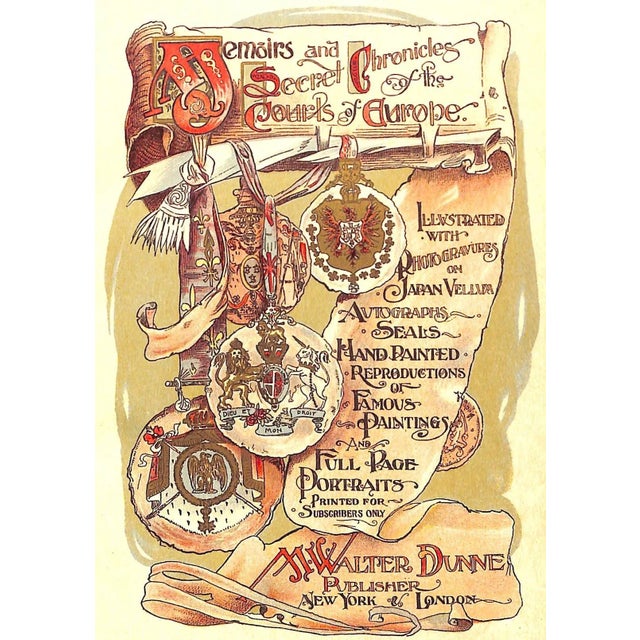 Memoirs and Chronicles
Secret of the
Courts of Europe.
Illustrated
with
Photogravures
on
Japan Vellum
Autographs
Seals
Hand Painted
Reproductions
of
Famous
Paintings
and
Full Page
Portraits
Printed for
Subscribers only
DIEU ET DROIT
MON
M. Walter Dunne
Publisher
New York & London